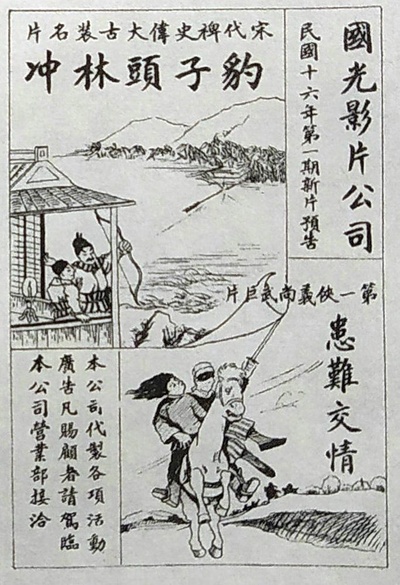 國光影片公司
民國十六年第一期新片預告
宋代稗史偉大古裝名片
豹子頭林冲
第一俠義尚武巨片
患難交情
本公司代製各項活動
廣告凡賜顧者請駕臨
本公司營業部接洽